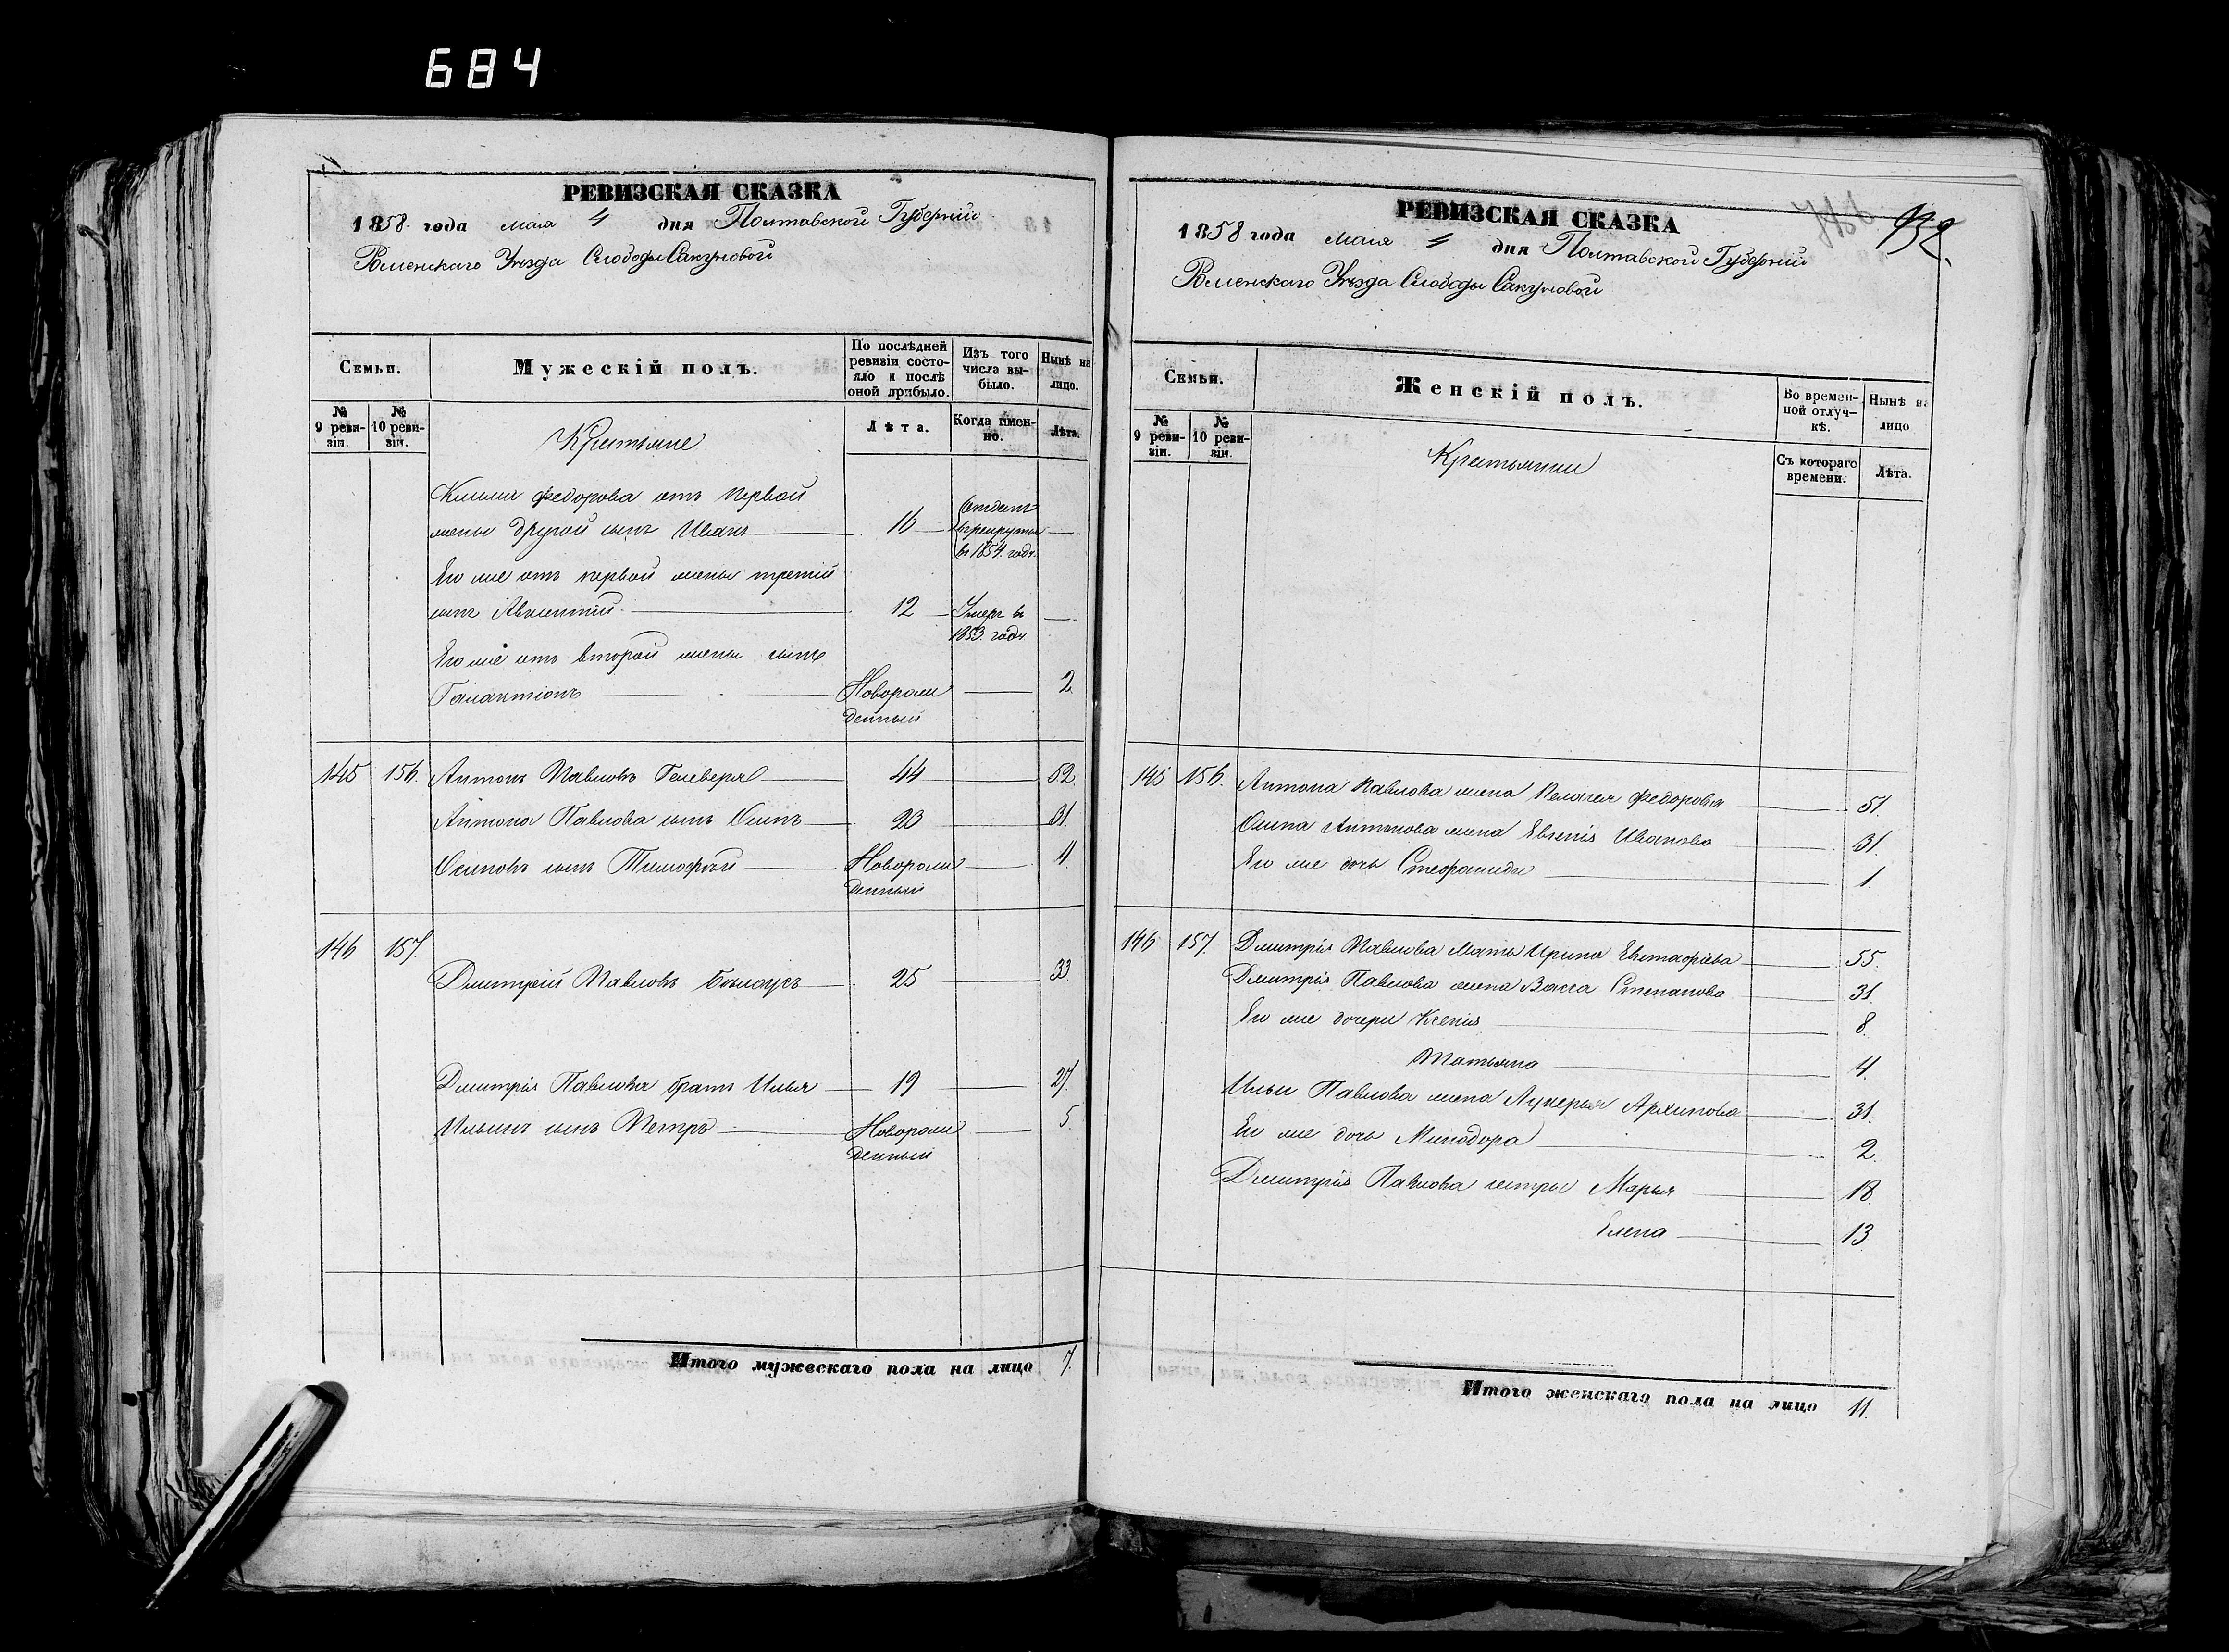 684
РЕВИЗСКАЯ СКАЗКА
1858 года маія 4 дня Полтавской Губерніи
Роменскаго Уѣзда Слободы Сакуновой
Семьи.
Мужескій полъ.
По послѣдней ревизіи состояло и послѣ оной прибыло.
Изъ того числа выбыло.
Нынѣ на лицо.
№ 9 ревизіи.
№ 10 ревизіи.
Крестьяне
Лѣта.
Когда именно.
Лѣта.
Федорова отъ первой
жены другой сынъ Иванъ 16 Отданъ в рекруты в 1854. годѣ.
Его же отъ первой жены третій
сынъ Авксентій 12 Умеръ въ 1853. годѣ
Его же отъ второй жены сынъ
Галактіонъ Новорожденный 2
145 156. Антонъ Павловъ Гелеверя 44 52.
Антона Павлова сынъ Осипъ 23 31.
Осиповъ сынъ Тимофѣй Новорожденный 4.
146 157.
Дмитрій Павловъ Бѣлоусъ 25 33
Дмитрія Павлова братъ Илья 19 27.
Ильинъ сынъ Петръ Новорожденный 5.
Итого мужескаго пола на лицо 7.
РЕВИЗСКАЯ СКАЗКА
1858 года маія 4 дня Полтавской Губерніи
Роменскаго Уѣзда Слободы Сакуновой
Семьи.
Женскій полъ.
Во временной отлучкѣ.
Нынѣ на лицо
№ 9 ревизіи.
№ 10 ревизіи.
Крестьянки
Съ котораго времени.
Лѣта.
145 156. Антона Павлова жена Пелагея Федорова 51.
Осипа Антонова жена Евгенія Иванова 31
Его же дочь Стефанида 1.
146 157. Дмитрія Павлова Мать Ирина Евстафіева 55.
Дмитрія Павлова жена Васса Степанова 31
Его же дочери Ксенія 8.
Татьяна 4.
Ильи Павлова жена Лукерья Архипова 31.
Его же дочь Минодора 2.
Дмитрія Павлова сестры Марья 18.
Елена 13.
Итого женскаго пола на лицо 11.